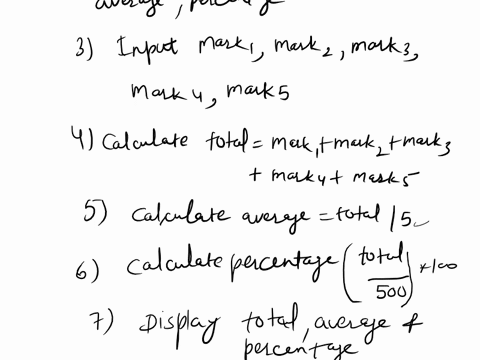 average, percentage
3) Input mark1, mark2, mark3,
mark4, mark5
4) Calculate total = mark1+mark2+mark3
+ mark4 + mark5
5) Calculate average = total /5
6) Calculate percentage (total/500) *100
7) Display total, average &
percentage